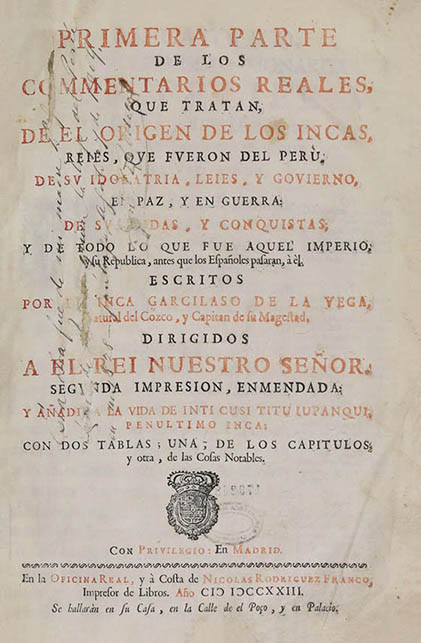 PRIMERA PARTE
DE LOS
COMMENTARIOS REALES,
QUE TRATAN,
DE EL ORIGEN DE LOS INCAS,
REIES, QVE FVERON DEL PERÙ,
DE SV IDOLATRIA, LEIES, Y GOVIERNO,
EN PAZ, Y EN GUERRA:
DE SVS VIDAS, Y CONQUISTAS;
Y DE TODO LO QUE FUE AQUEL IMPERIO,
y su Republica, antes que los Españoles pasaran, à èl.
ESCRITOS
POR EL INCA GARCILASO DE LA VEGA,
Natural del Cozco, y Capitan de su Magestad,
DIRIGIDOS
A EL REI NUESTRO SEÑOR.
SEGUNDA IMPRESION, ENMENDADA:
Y AÑADIDA LA VIDA DE INTI CUSI TITU IUPANQUI,
PENULTIMO INCA:
CON DOS TABLAS; UNA; DE LOS CAPITULOS,
y otra, de las Cosas Notables.
CON PRIVILEGIO: EN MADRID.
En la OFICINA REAL, y à Costa de NICOLAS RODRIGUEZ FRANCO,
Impresor de Libros. Año CIƆ IƆCCXXIII.
Se hallaràn en su Casa, en la Calle de el Poço, y en Palacio.